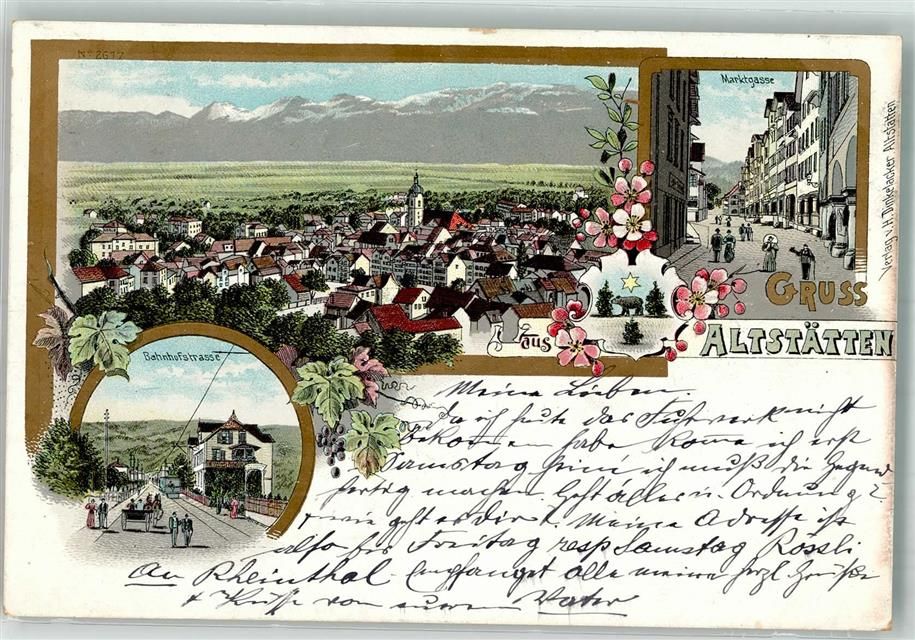 No 2677
Marktgasse
Verlag v. H. Dinkelacker Altstätten
GRUSS
aus
ALTSTÄTTEN
Bahnhofstrasse
Meine Lieben.
Da ich heute das Fuhrwerk nicht
bekommen habe komme ich erst
Samstag heim ich muß die Gegend
fertig machen. Geht alles in Ordnung?
+ wie geht es dir. Meine Adresse ist
also bis Freitag resp Samstag Rössli
Au Rheinthal. Empfanget alle meine herzl Grüße
+ Küsse von eurem Vater